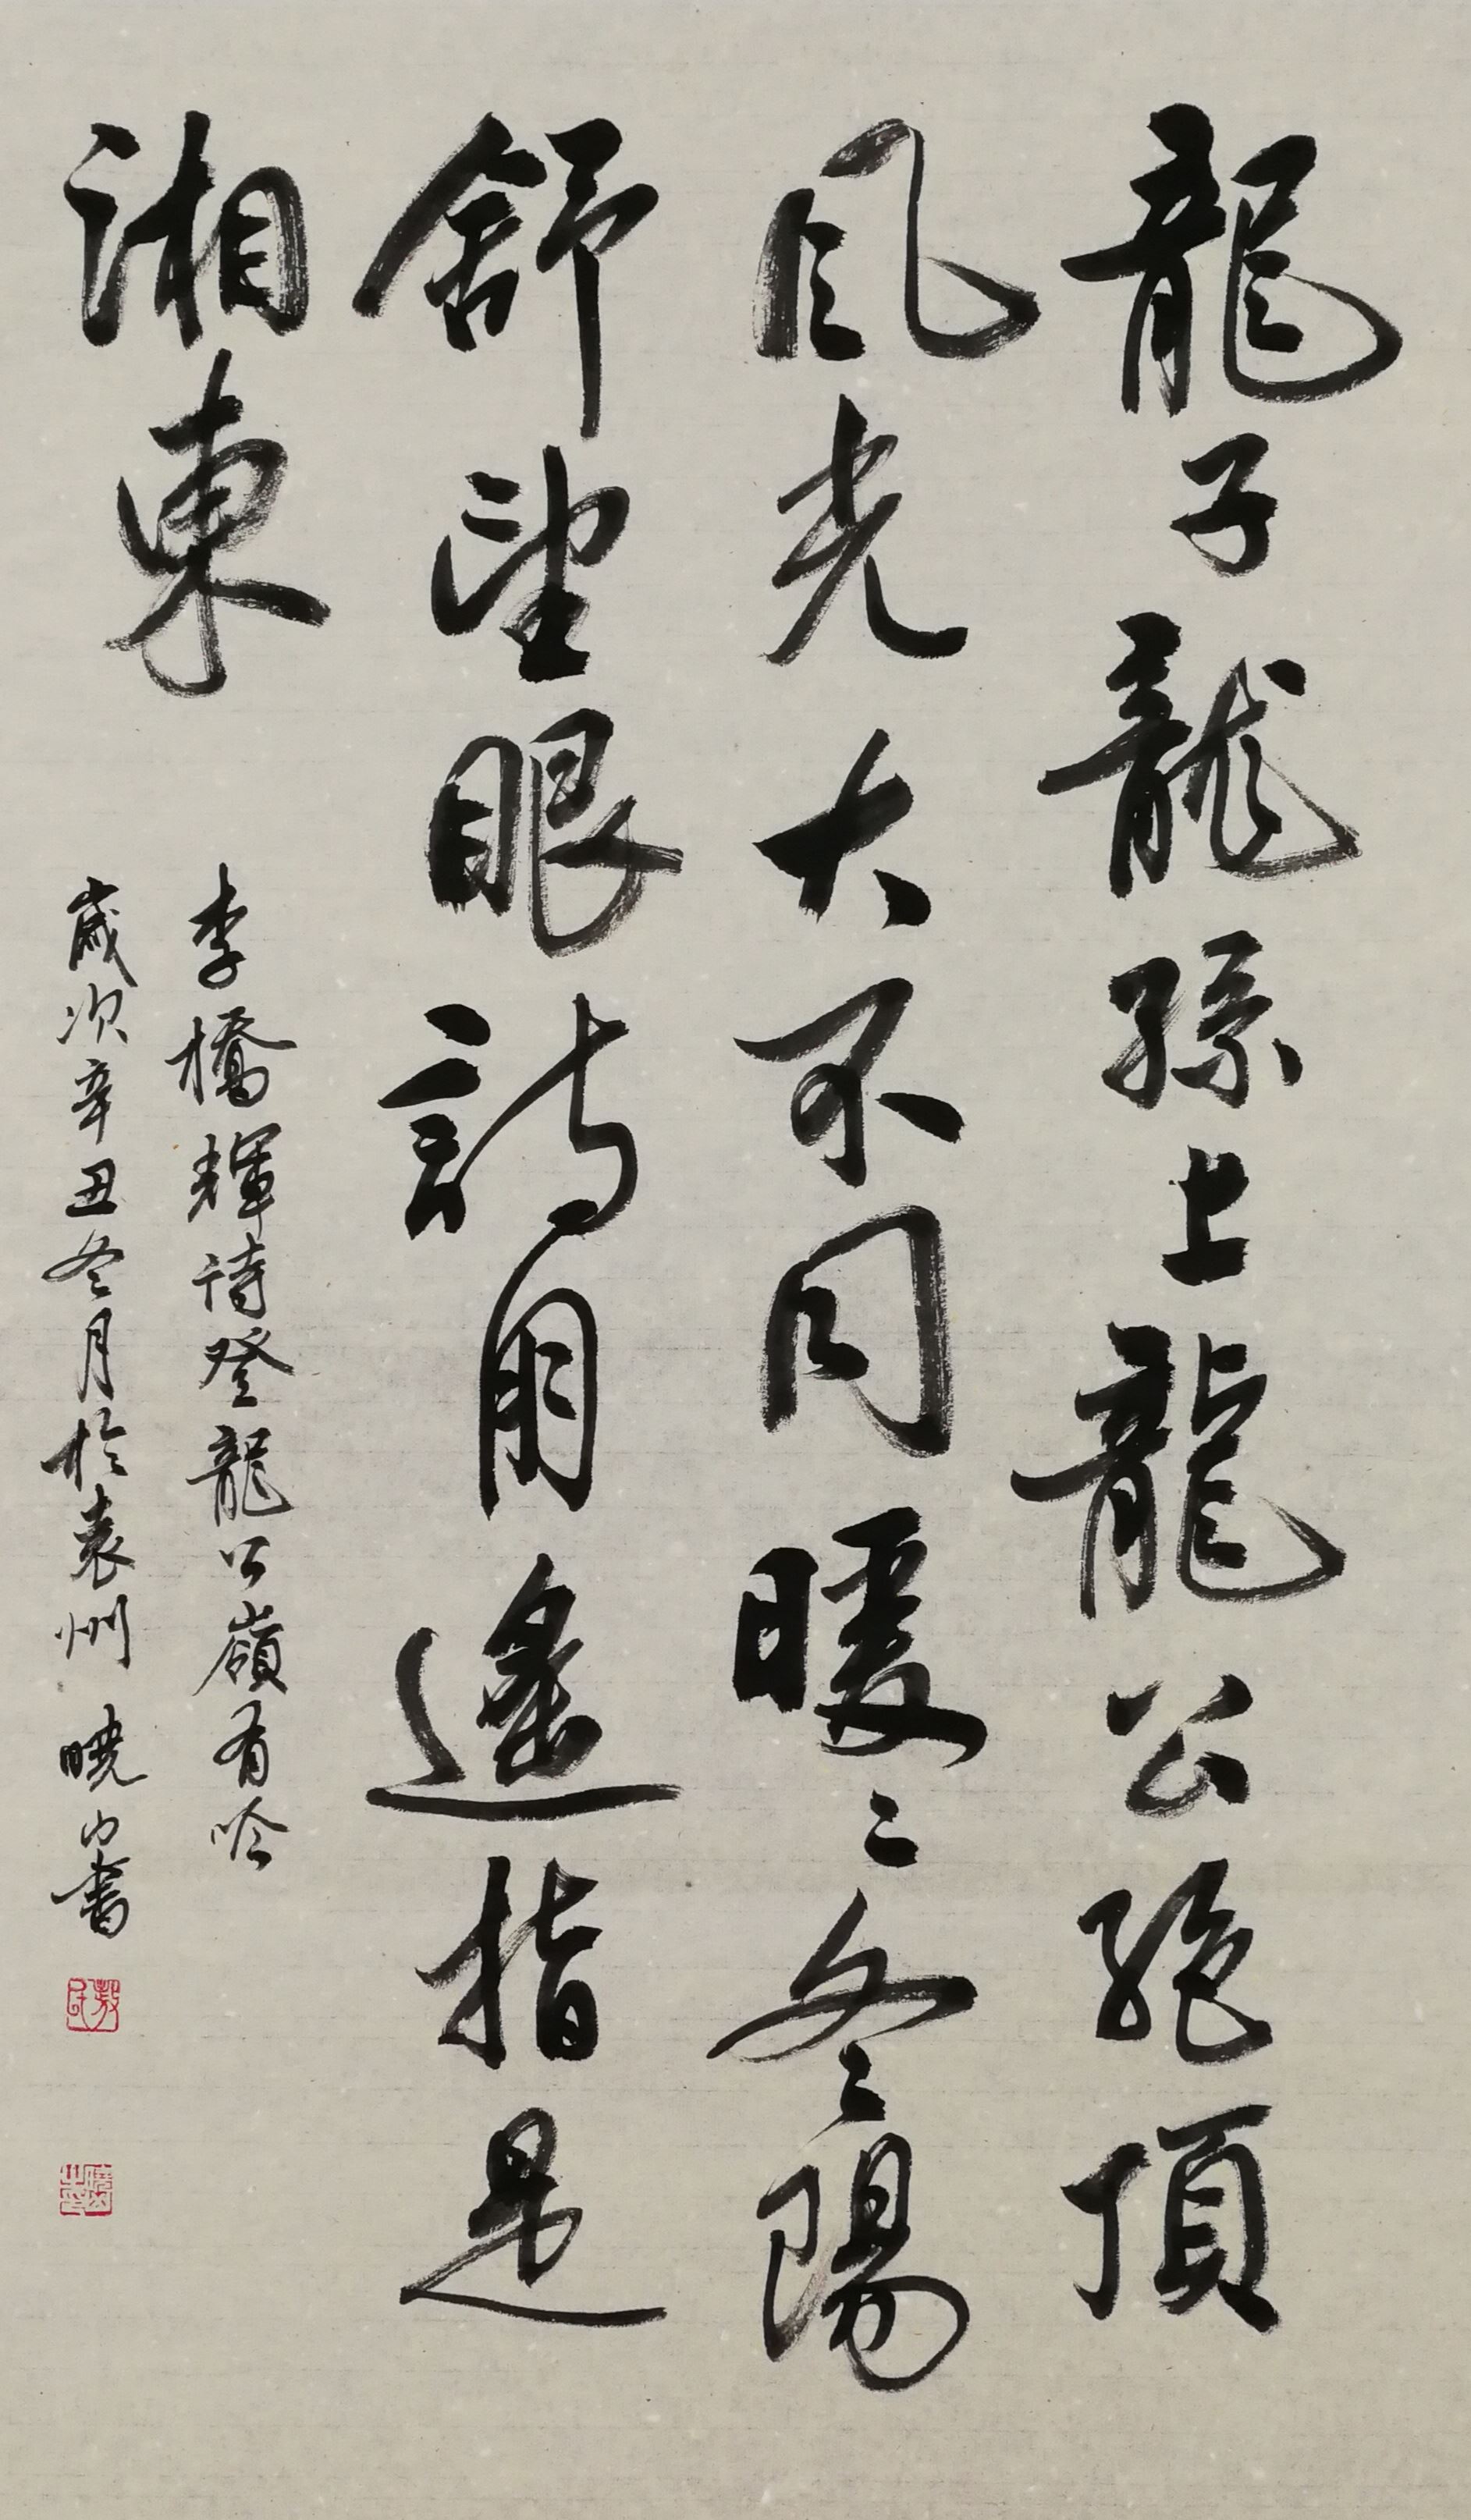 龍子龍孫上龍公絕頂
風光大不同暖〻冬陽
舒望眼詩朋遙指是
湘東
李橋輝诗登龍公嶺有吟
歲次辛丑冬月於袁州曉山書